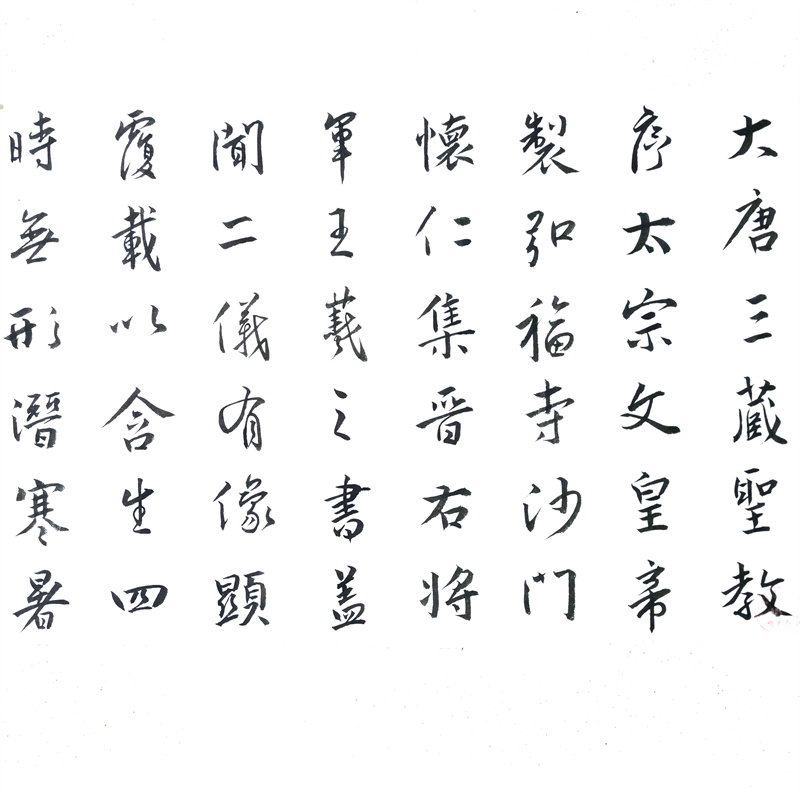 大唐三藏聖教
序太宗文皇帝
製弘福寺沙門
懷仁集晉右將
軍王羲之書蓋
聞二儀有像顯
覆載以含生四
時無形潛寒暑